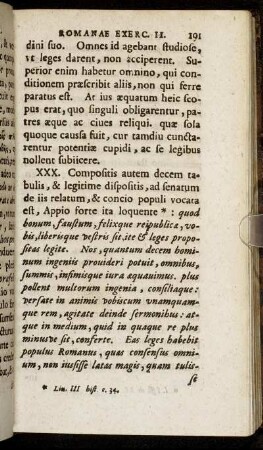 ROMANAE EXERC. II. 191
dini suo. Omnes id agebant studiose,
ut leges darent, non acciperent. Su-
perior enim habetur omnino, qui con-
ditionem præscribit aliis, non qui ferre
paratus est. At ius æquatum heic sco-
pus erat, quo singuli obligarentur, pa-
tres æque ac ciues reliqui. quæ sola
quoque causa fuit, cur tamdiu cuncta-
rentur potentiæ cupidi, ac se legibus
nollent subiicere.
XXX. Compositis autem decem ta-
bulis, & legitime dispositis, ad senatum
de iis relatum, & concio populi vocata
est, Appio forte ita loquente *: quod
bonum, faustum, felixque reipublicæ, vo-
bis, liberisque vestris sit, ite & leges propo-
sitas legite. Nos, quantum decem homi-
num ingeniis prouideri potuit, omnibus,
summis, infimisque iura æquauimus. plus
pollent multorum ingenia, consiliaque:
versate in animis vobiscum vnamquam-
que rem, agitate deinde sermonibus: at-
que in medium, quid in quaque re plus
minusve sit, conferte. Eas leges habebit
populus Romanus, quas consensus omni-
um, non iussisse latas magis, quam tulis-
se
* Liu. III hist. c. 34.